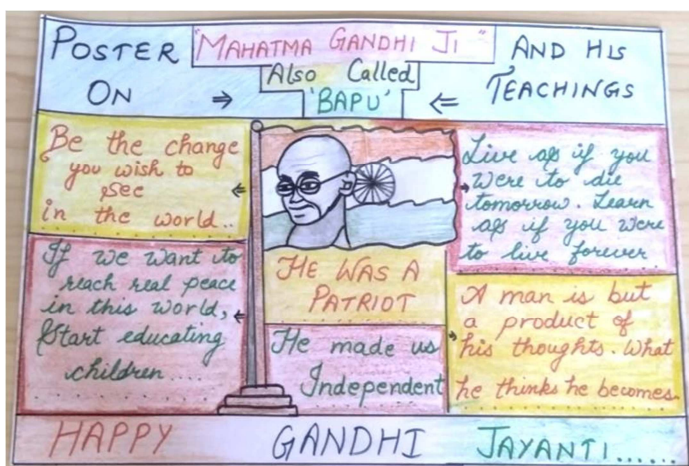 POSTER ON
"MAHATMA GANDHI JI"
Also Called
'BAPU'
AND HIS
TEACHINGS
Be the change
you wish to
see
in the world..
If we want to
reach real peace
in this world,
Start educating
children....
HE WAS A
PATRIOT
He made us
Independent
Live as if you
were to die
tomorrow. Learn
as if you were
to live forever
A man is but
a product of
his thoughts. What
he thinks he becomes.
HAPPY GANDHI JAYANTI......